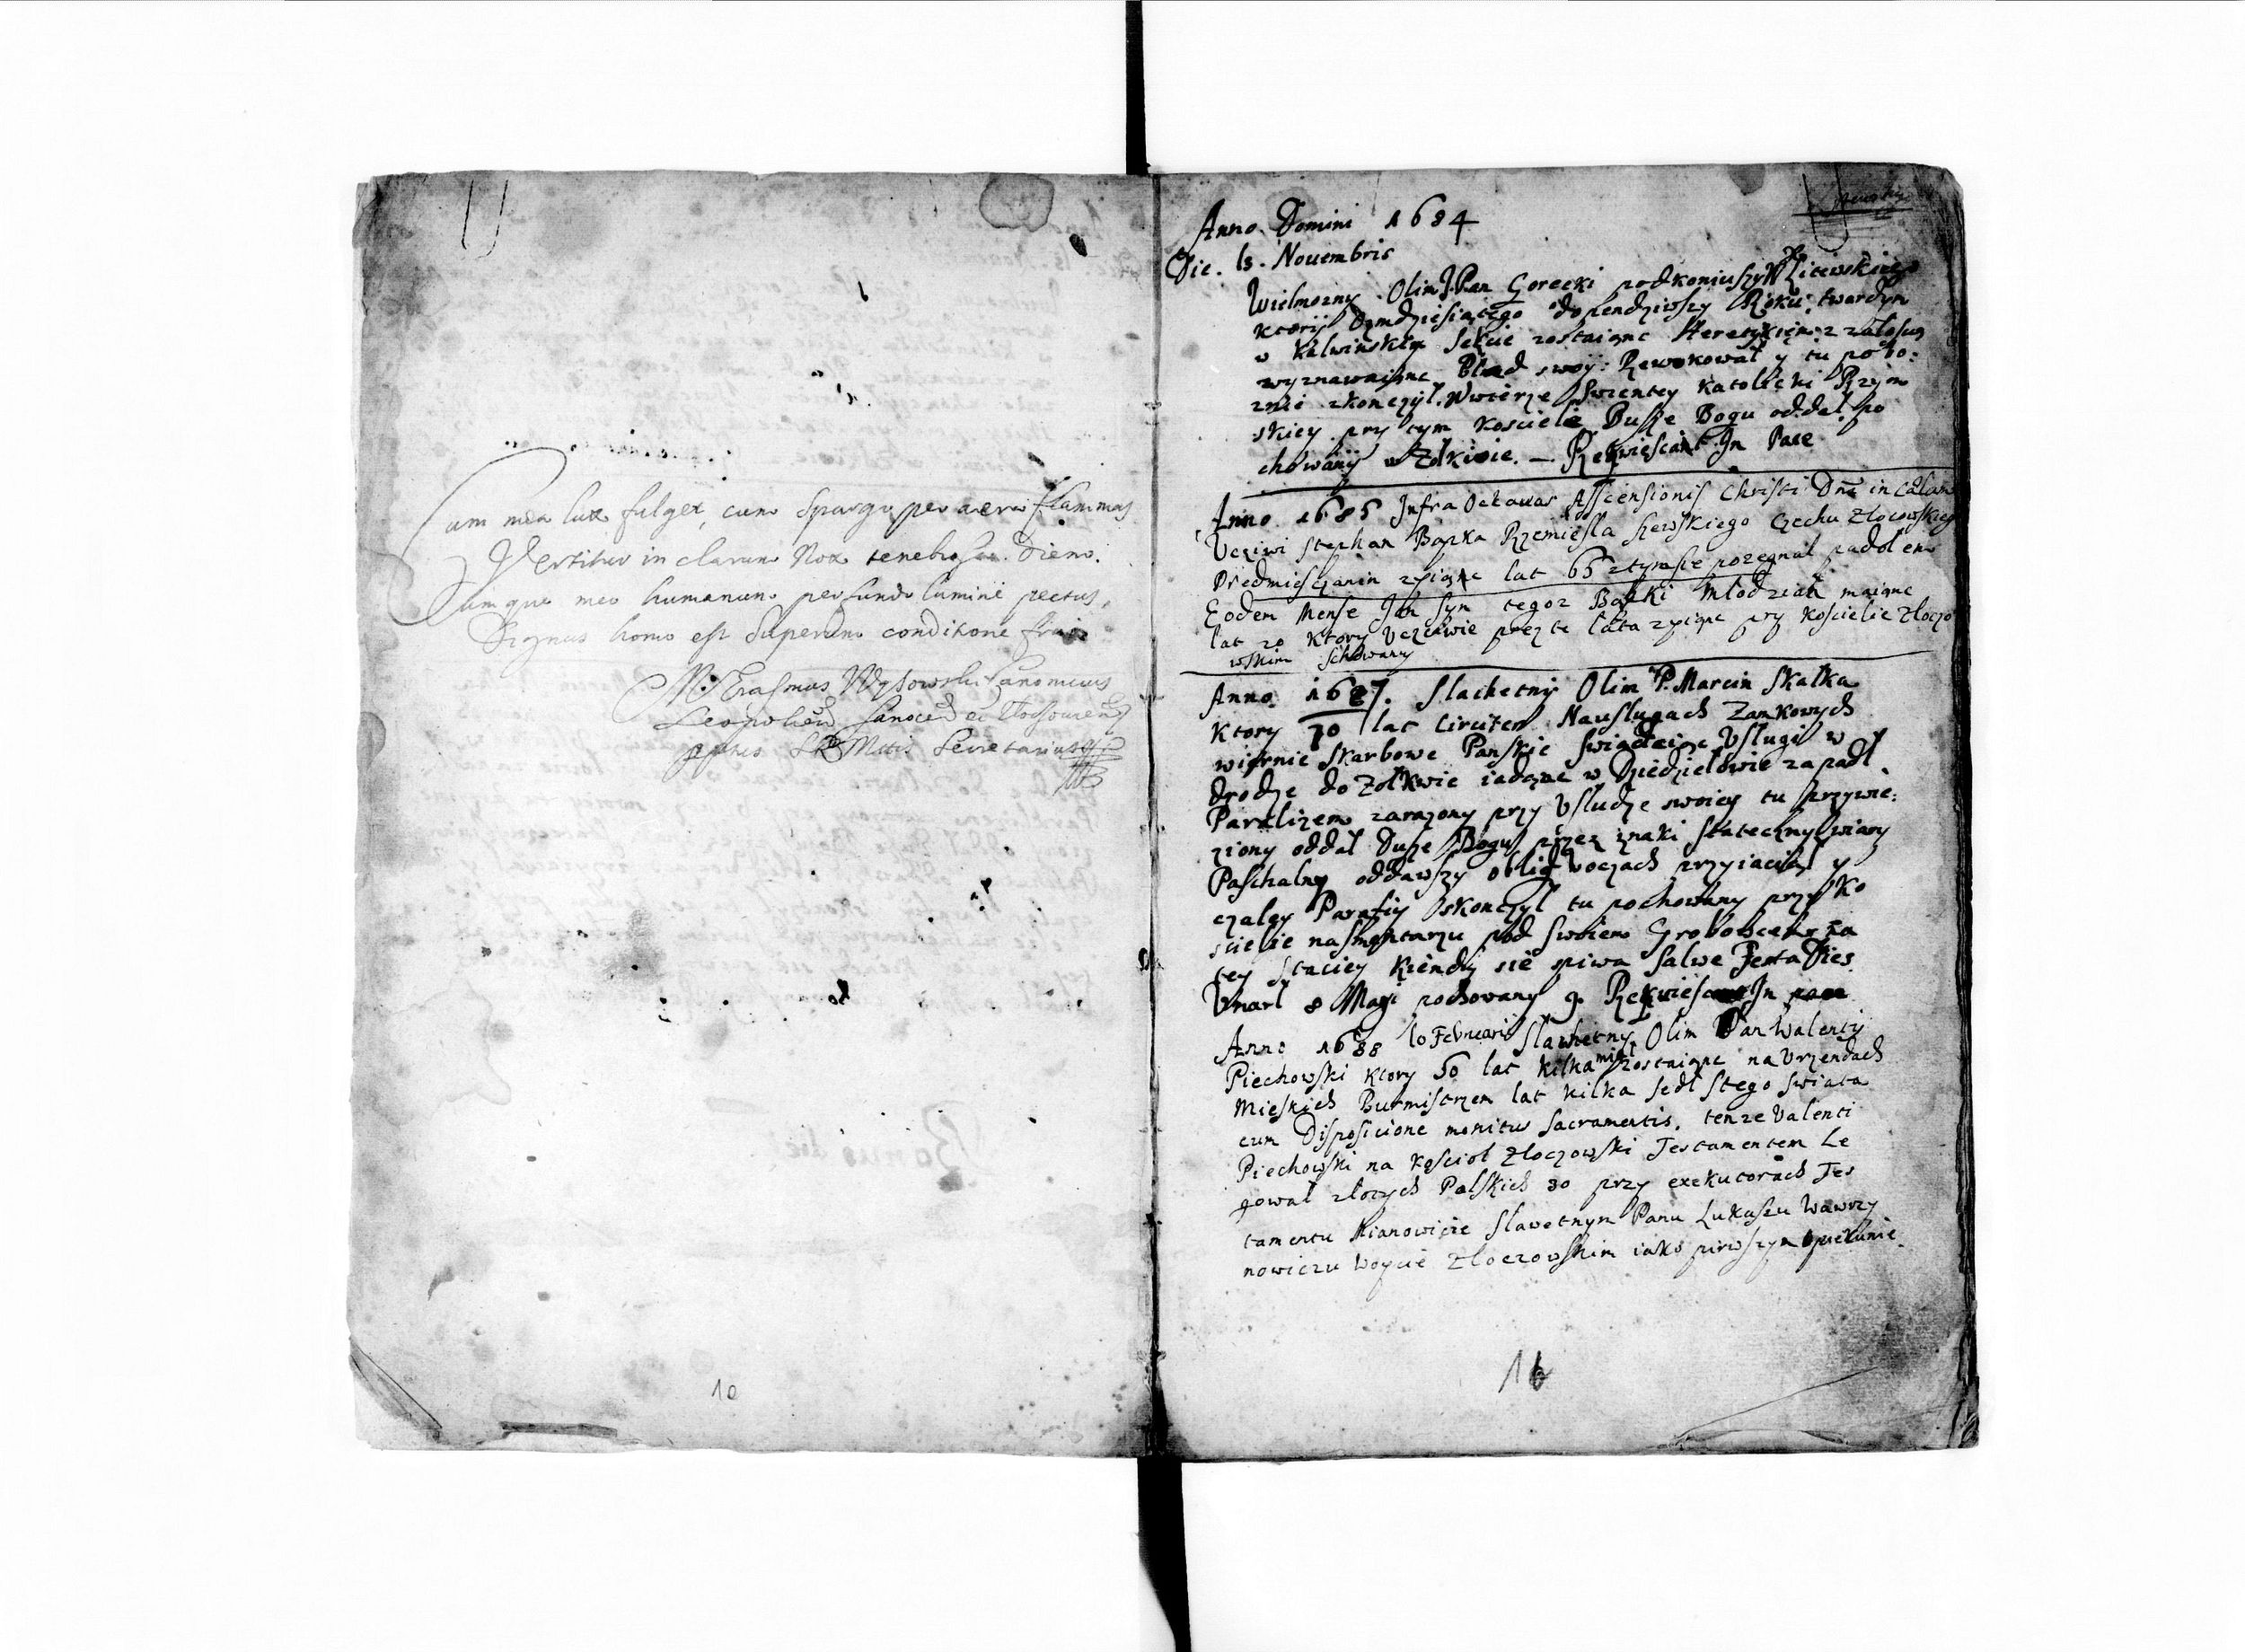 Cum mea lux fulget, cum spargo per aera flammas
Vertitur in claram Nox tenebrosa Diem.
Cumque meo humanum perfundo lumine pectus,
Dignus homo est Superum conditione frui
M. Erasmus Canonicus
Secretarius
10
Anno Domini 1684
Die. 15. Nouembris
Wielmozny Olim J. Pan Gorecki podkoniuszy W X Litewskiego
ktorÿ Osmdziesiątego dopendziwszy Roku twardym
w Kalwinskim Sekcie zostaiąnc Heretykiem z załosią
wyznawaiąnc Bład swoÿ Rewokował y tu pobo:
znie zkonczÿł. W wierze Swientey Katolicki Rzÿm
skiey przy tym Kosciele Dusse Bogu oddał po
chowanÿ w Zołkiwie. — Requiescant In Pace
Anno 1686 Infra Octauas Asscensionis Christi Dni in Cælum
Vcziwi Stephan Bapka Rzemiesła Szewskiego Czechu Złocowskiego
Predmiesczanin zyiąnc lat 65 ztymsie pozegnał padołem
Eodem Mense Jan Syn tegoz Bapki Młodzian maiąnc
lat 20 ktory Vczciwie prezte lata zyiąnc pry Kościelie Złoczo
wskim schowany
Anno 1687. Slachetny Olim P. Marcin Skałka
Ktory 70 lat Circiter Nausługach Zamkowych
wiernie Skarbowe Panskie Swiadcząc Vsługi w
drodze do Zołkwie iadąnc w Dziedziełowie zapadł
Paraliżem zarażony przy Vsłudze swoiey tu przywie:
ziony oddał Dusze Bogu przez znaki statecznÿ wiary
Paschalny oddawszy oblig woczach przyiacioł y
czałey Parafiy skonczył tu pochowany przy Ko
scielie na Smentarzu pod swoiem Grobowcem za
tey Staciey kiendy sie spiwa Salve Festa Dies
Vmarł 8 Maÿi pochovany 9. Requiescat In pace
Anno 1688 10 Februarii Slawhetny Olim Pan Walenty
Piechowski ktory 50 lat kilka miał zostaiąnc na Vrzendach
Mieskich Burmistrzem lat kilka sedł Stego Swiata
cum Disposicione monitus Sacramentis. tenze Valenti
Piechowski na Kościoł Złoczowski Testamentem Le
gował złotych Polskich 30 przy exekutorach Tes
tamentu Mianowicie Slawetnym Panu Lukaszu Wawrzy
nowiczu Woycie Złoczowskim iako pirwszym Opiekunie.
16